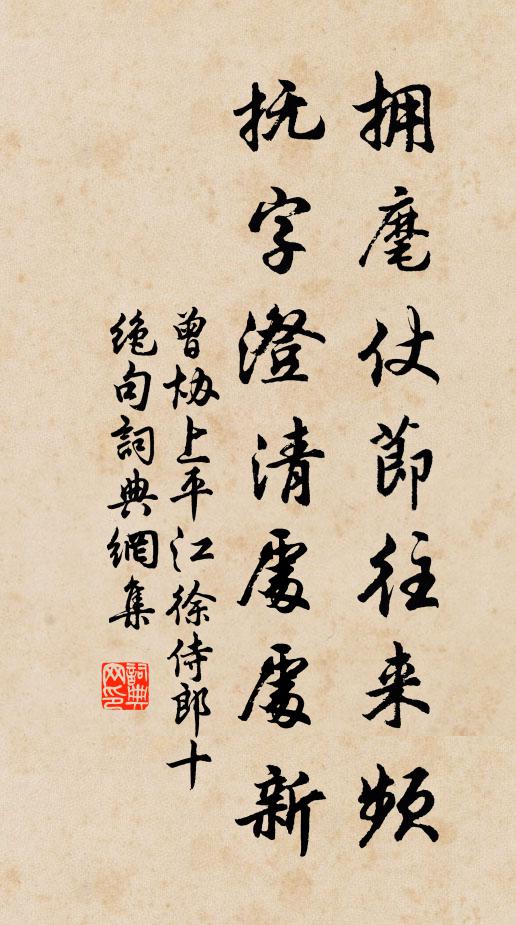 拥麾仗節往来频
抚字澄清處處新
曾协上平江徐侍郎十
绝句詞典網集
詞典
网印